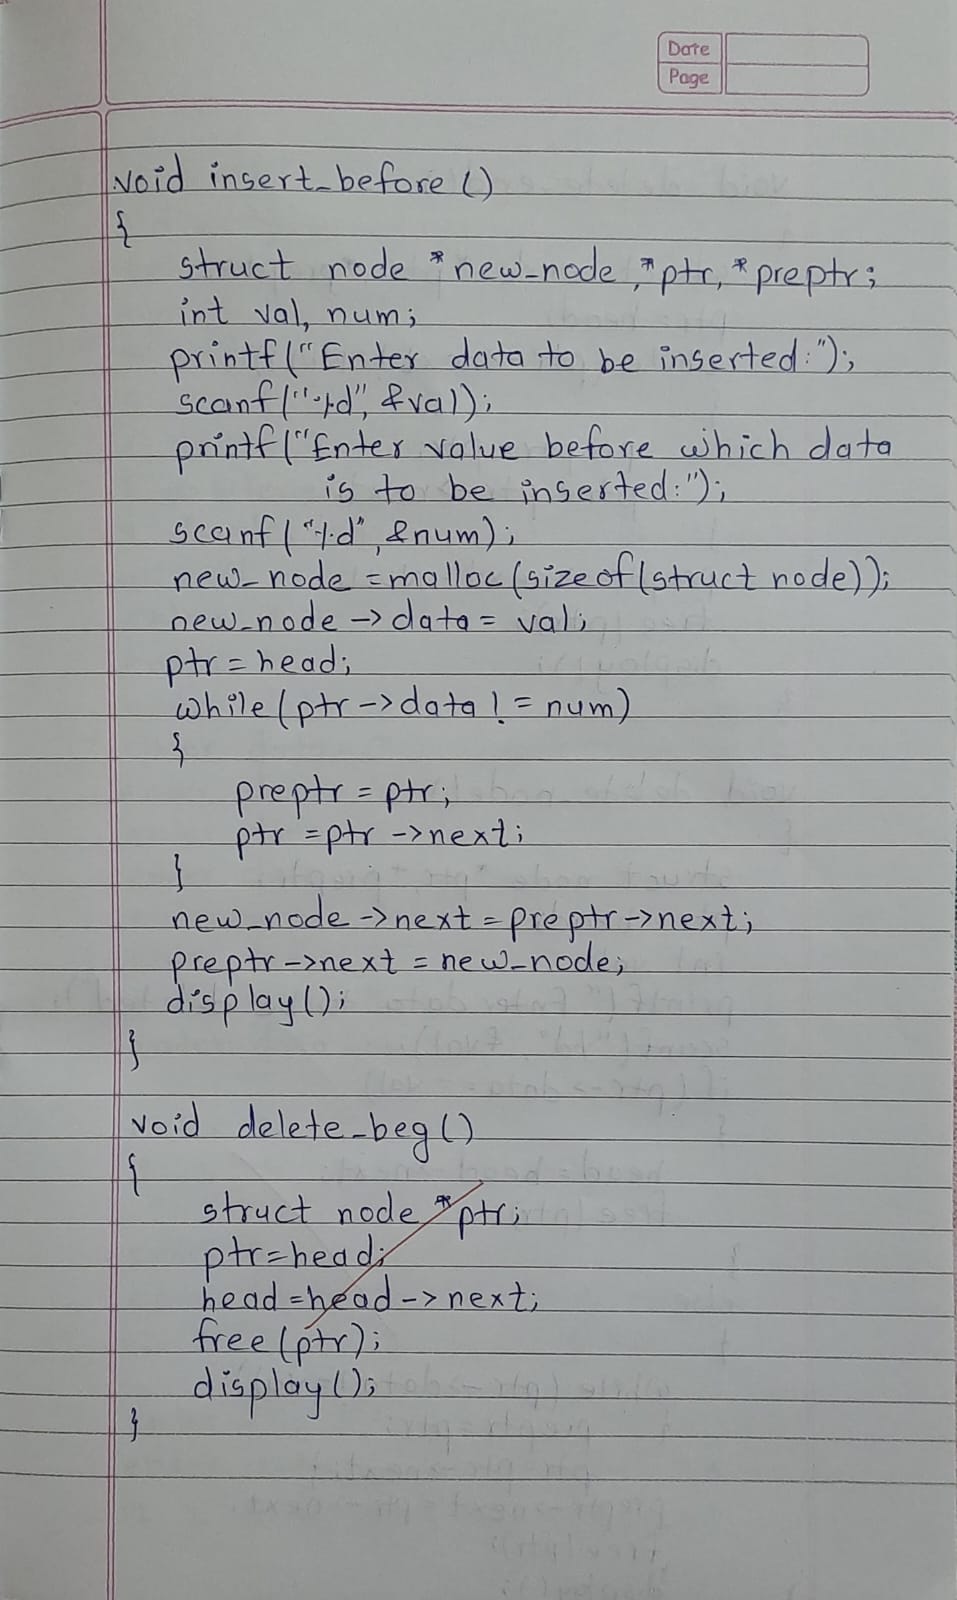 Date
Page
void insert_before()
{
struct node *new_node, *ptr, *preptr;
int val, num;
printf("Enter data to be inserted:");
scanf("%d", &val);
printf("Enter value before which data
is to be inserted:");
scanf("%d", &num);
new_node = malloc(sizeof(struct node));
new_node -> data = val;
ptr = head;
while(ptr -> data != num)
{
preptr = ptr;
ptr = ptr -> next;
}
new_node -> next = preptr -> next;
preptr -> next = new_node;
display();
}
void delete_beg()
{
struct node *ptr;
ptr = head;
head = head -> next;
free(ptr);
display();
}